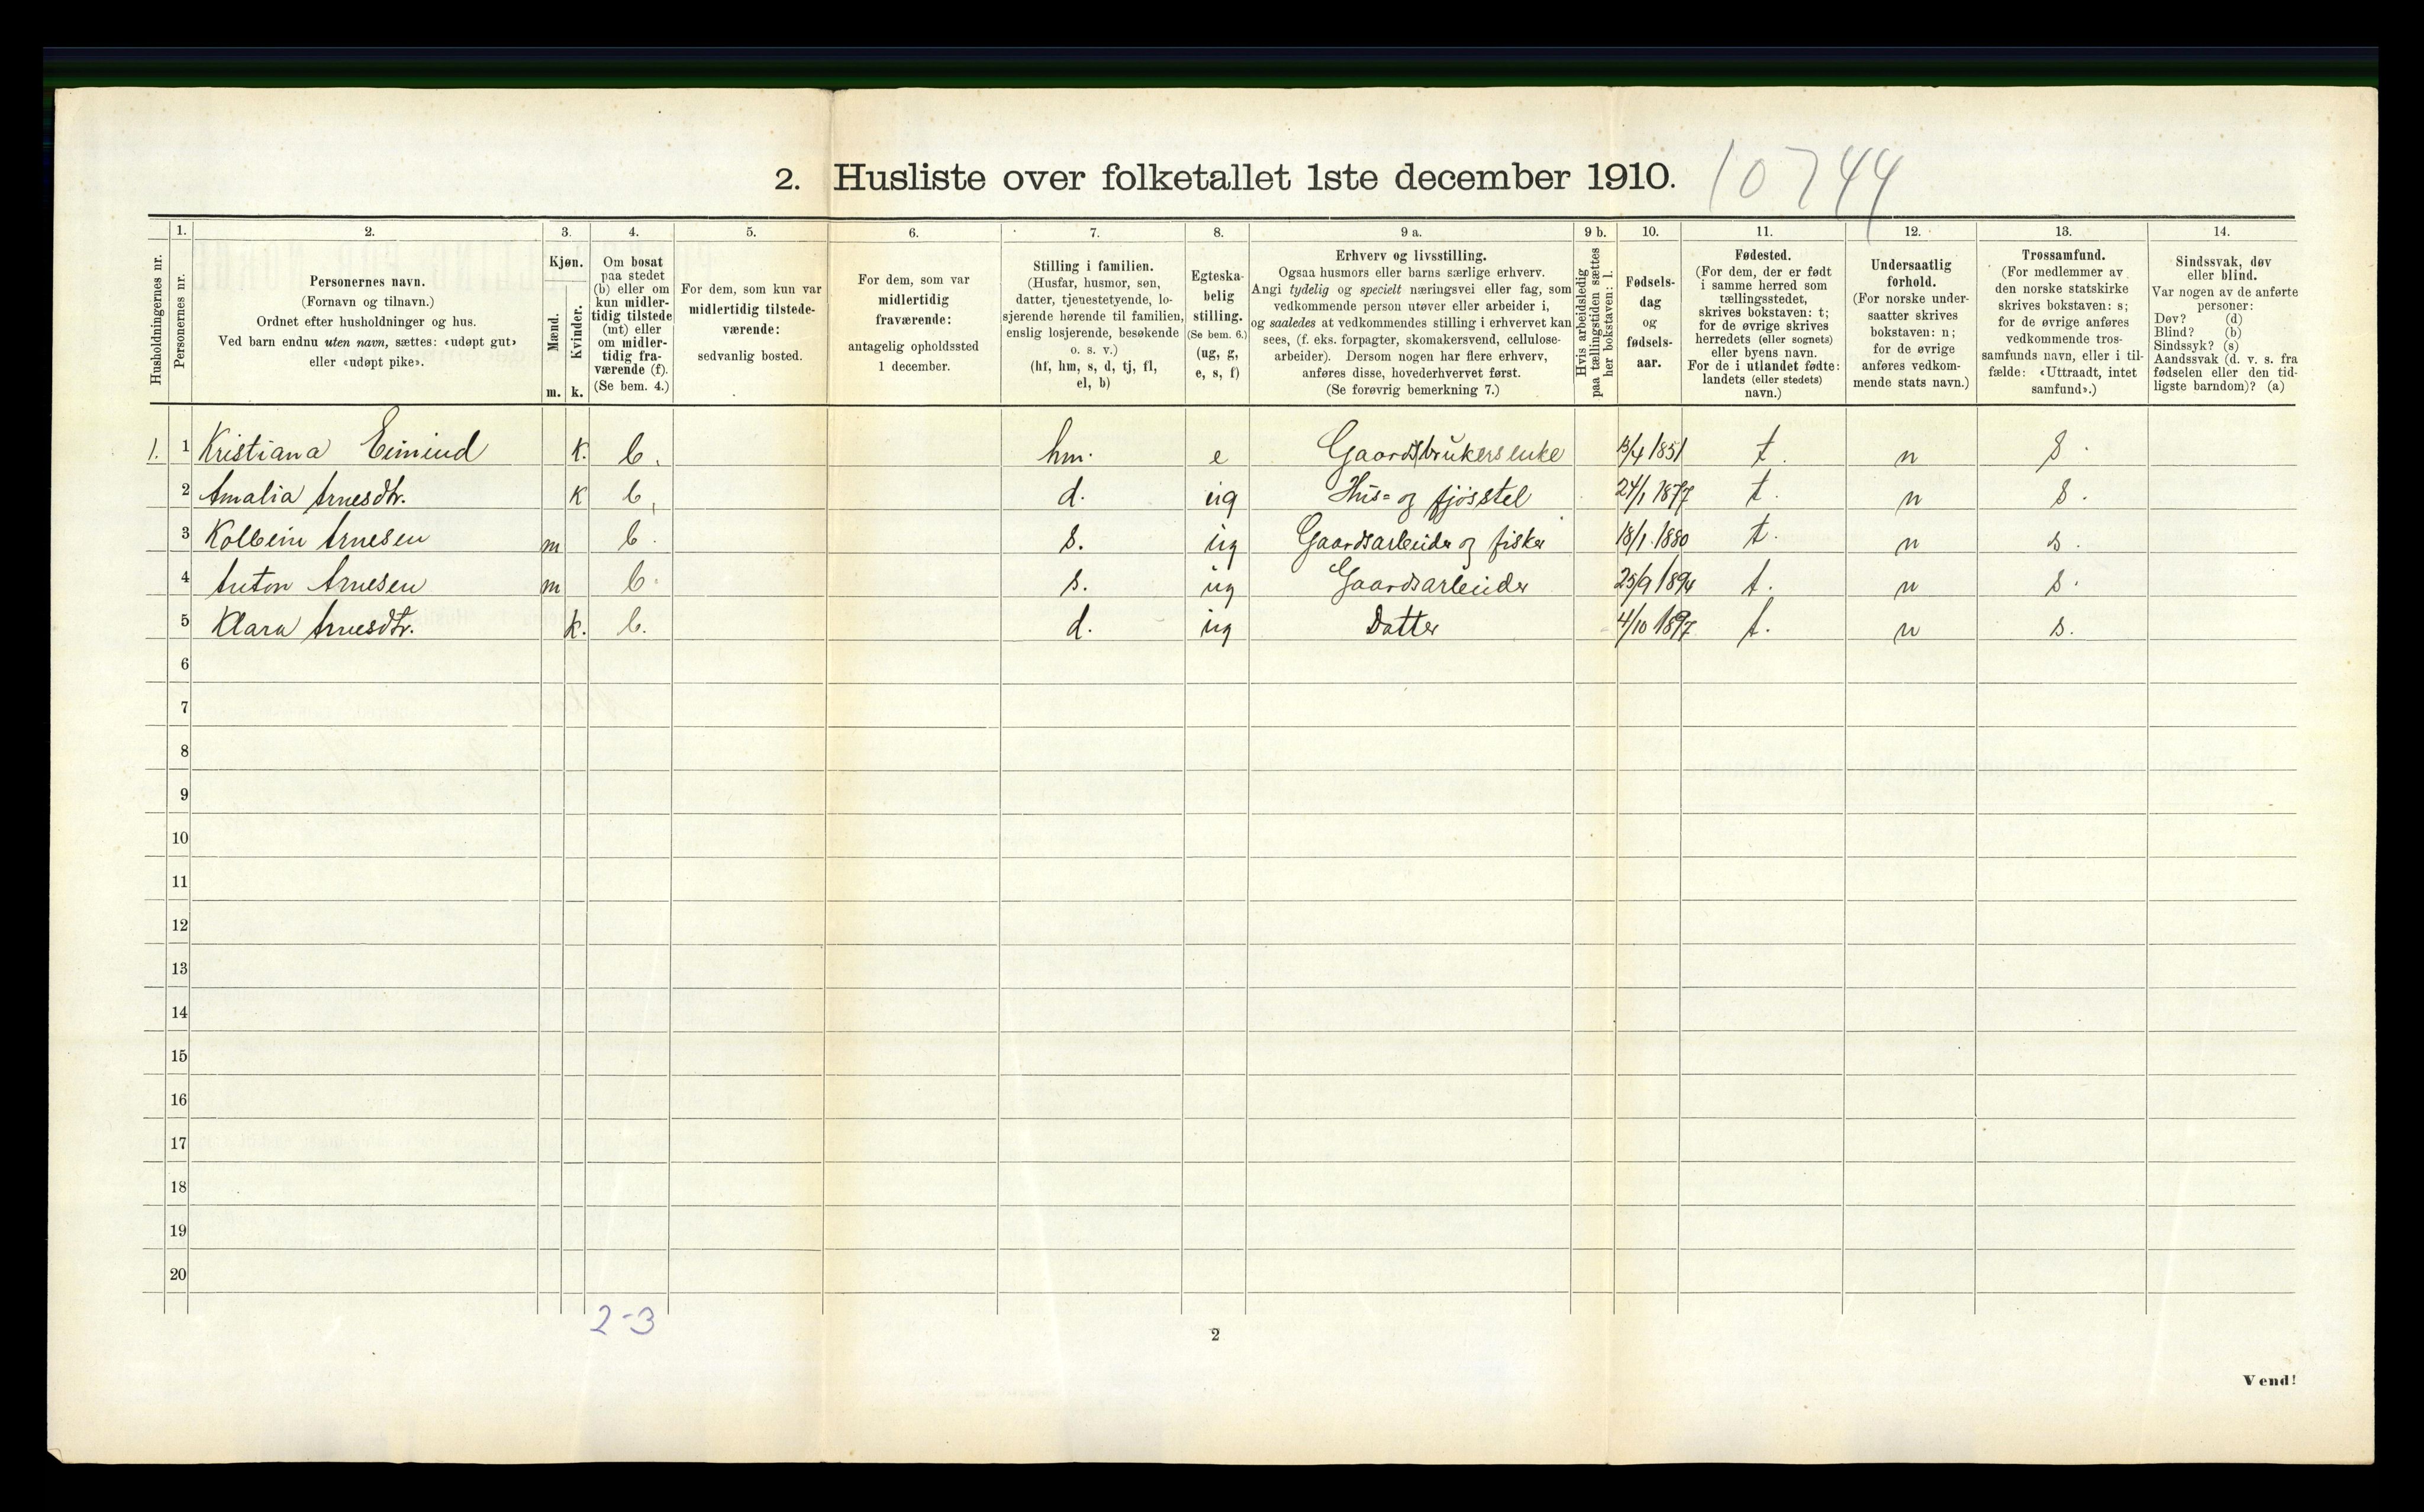 2. Husliste over folketallet 1ste december 1910. 10744
Husholdningernes nr.
1.
Personernes nr.
2.
Personernes navn.
(Fornavn og tilnavn.)
Ordnet efter husholdninger og hus.
Ved barn endnu uten navn, sættes: «udøpt gut»
eller «udøpt pike».
3.
Kjøn.
Mænd.
Kvinder.
m. k.
4.
Om bosat
paa stedet
(b) eller om
kun midler-
tidig tilstede
(mt) eller
om midler-
tidig fra-
værende (f).
(Se bem. 4.)
5.
For dem, som kun var
midlertidig tilstede-
værende:
sedvanlig bosted.
6.
For dem, som var
midlertidig
fraværende:
antagelig opholdssted
1 december.
7.
Stilling i familien.
(Husfar, husmor, søn,
datter, tjenestetyende, lo-
sjerende hørende til familien,
enslig losjerende, besøkende
o. s. v.)
(hf, hm, s, d, tj, fl,
el, b)
8.
Egteska-
belig
stilling.
(Se bem. 6.)
(ug, g,
e, s, f)
9 a.
Erhverv og livsstilling.
Ogsaa husmors eller barns særlige erhverv.
Angi tydelig og specielt næringsvei eller fag, som
vedkommende person utøver eller arbeider i,
og saaledes at vedkommendes stilling i erhvervet kan
sees, (f. eks. forpagter, skomakersvend, cellulose-
arbeider). Dersom nogen har flere erhverv,
anføres disse, hovederhvervet først.
(Se forøvrig bemerkning 7.)
9 b.
Hvis arbeidsledig
paa tællingstiden sættes
her bokstaven: l.
10.
Fødsels-
dag
og
fødsels-
aar.
11.
Fødested.
(For dem, der er født
i samme herred som
tællingsstedet,
skrives bokstaven: t;
for de øvrige skrives
herredets (eller sognets)
eller byens navn.
For de i utlandet fødte:
landets (eller stedets)
navn.)
12.
Undersaatlig
forhold.
(For norske under-
saatter skrives
bokstaven: n;
for de øvrige
anføres vedkom-
mende stats navn.)
13.
Trossamfund.
(For medlemmer av
den norske statskirke
skrives bokstaven: s;
for de øvrige anføres
vedkommende tros-
samfunds navn, eller i til-
fælde: «Uttraadt, intet
samfund».)
14.
Sindssvak, døv
eller blind.
Var nogen av de anførte
personer:
Døv? (d)
Blind? (b)
Sindssyk? (s)
Aandssvak (d. v. s. fra
fødselen eller den tid-
ligste barndom)? (a)
1. 1 Kristiana k. b. hm. e Gaardsbrukers enke 13/4 1851 t. n s.
2 Amalia Arnesdtr. k b. d. ug Hus- og fjøsstel 24/1 1877 t. n s.
3 Kolbein Arnesen m b. s. ug Gaardsarbeider og fisker 18/1 1880 t. n s.
4 Anton Arnesen m b. s. ug Gaardsarbeider 25/9 1894 t. n s.
5 Klara Arnesdtr. k. b. d. ug Datter 4/10 1897 t. n s.
6
7
8
9
10
11
12
13
14
15
16
17
18
19
20
2-3
2
Vend!